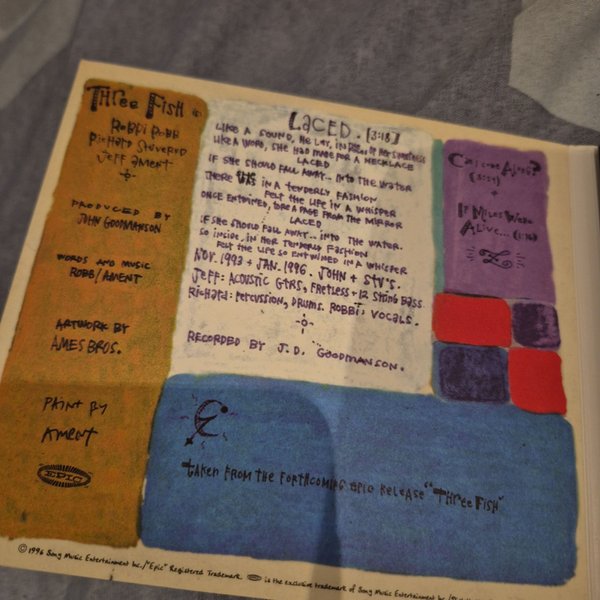 Three Fish is:
Robbi Robb
Richard Stuverud
Jeff Ament
PRODUCED BY
JOHN GOODMANSON
WORDS AND MUSIC
ROBB/AMENT
ARTWORK BY
AMES BROS.
PAINT BY
Ament
EPIC
LACED. [3:18]
LIKE A SOUND, HE LAY, IN OF HER
LIKE A WORD, SHE HAD MADE FOR A NECKLACE
LACED
IF SHE SHOULD FALL AWAY... INTO THE WATER
THERE IN A TENDERLY FASHION
FELT THE LIFE IN A WHISPER
ONCE ENTWINED, TORE A PAGE FROM THE MIRROR
LACED.
IF SHE SHOULD FALL AWAY... INTO THE WATER.
SO INSIDE, IN HER TENDERLY FASHION
FELT THE LIFE SO ENTWINED IN A WHISPER
NOV. 1993 + JAN. 1996. JOHN + STU'S.
JEFF: ACOUSTIC GTRS, FRETLESS + 12 STRING BASS.
Richard: Percussion, DRUMS. ROBBI: VOCALS.
RECORDED BY J.D. GOODMANSON.
+
IF MILES WERE
ALIVE...
TAKEN FROM THE FORTHCOMING EPIC RELEASE "THREE FISH"
© 1996 Sony Music Entertainment Inc./"Epic" Registered Trademark. EPIC is the exclusive trademark of Sony Music Entertainment Inc.